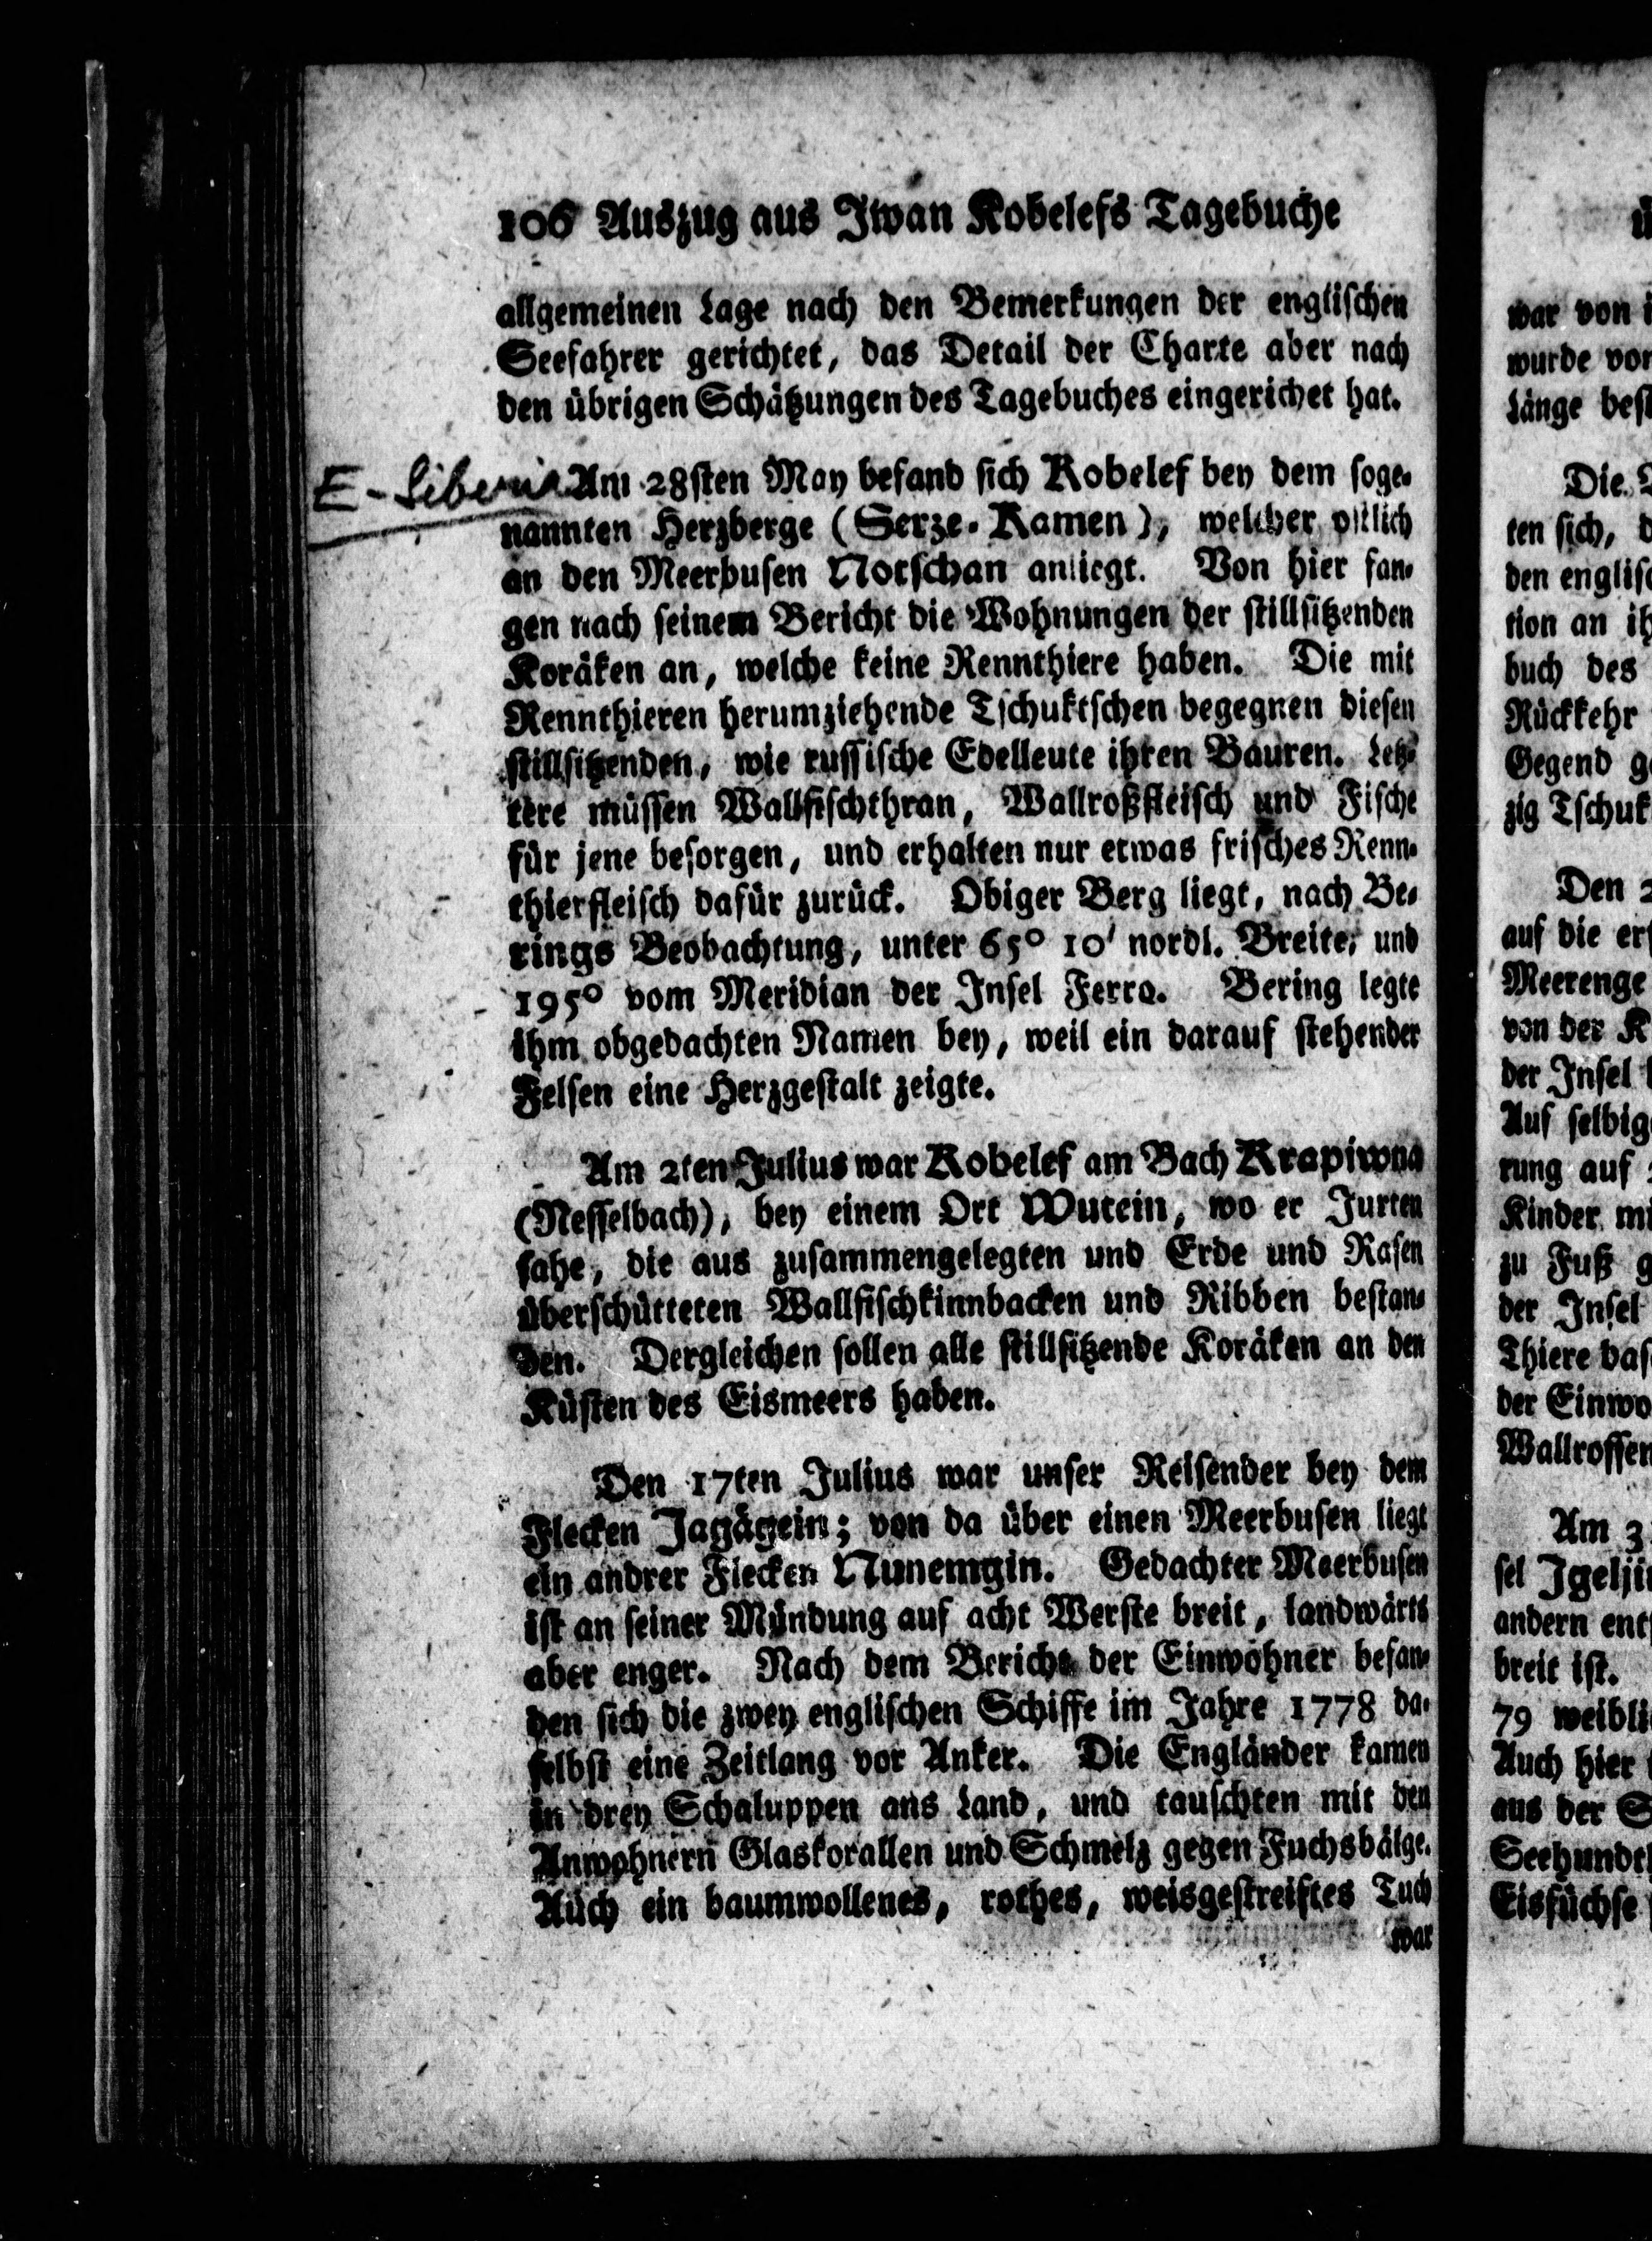 106 Auszug aus Iwan Kobelefs Tagebuche
allgemeinen Lage nach den Bemerkungen der englischen
Seefahrer gerichtet, das Detail der Charte aber nach
den übrigen Schätzungen des Tagebuches eingerichet hat.
E-Siberia
Am 28sten May befand sich Kobelef bey dem soge-
nannten Herzberge (Serze-Kamen), welcher östlich
an den Meerbusen Notschan anliegt. Von hier fan-
gen nach seinem Bericht die Wohnungen der stillsitzenden
Koräken an, welche keine Rennthiere haben. Die mit
Rennthieren herumziehende Tschuktschen begegnen diesen
stillsitzenden, wie russische Edelleute ihren Bauren. Letz-
tere müssen Wallfischthran, Wallroßfleisch und Fische
für jene besorgen, und erhalten nur etwas frisches Renn-
thierfleisch dafür zurück. Obiger Berg liegt, nach Be-
rings Beobachtung, unter 65° 10' nordl. Breite, und
195° vom Meridian der Insel Ferro. Bering legte
ihm obgedachten Namen bey, weil ein darauf stehender
Felsen eine Herzgestalt zeigte.
Am 2ten Julius war Kobelef am Bach Krapiwna
(Nesselbach), bey einem Ort Wutein, wo er Jurten
sahe, die aus zusammengelegten und Erde und Rasen
überschütteten Wallfischkinnbacken und Ribben bestan-
den. Dergleichen sollen alle stillsitzende Koräken an den
Küsten des Eismeers haben.
Den 17ten Julius war unser Reisender bey dem
Flecken Jagägein; von da über einen Meerbusen liegt
ein andrer Flecken Nunemgin. Gedachter Meerbusen
ist an seiner Mündung auf acht Werste breit, landwärts
aber enger. Nach dem Bericht der Einwohner befan-
den sich die zwey englischen Schiffe im Jahre 1778 da-
selbst eine Zeitlang vor Anker. Die Engländer kamen
in drey Schaluppen ans Land, und tauschten mit den
Anwohnern Glaskorallen und Schmelz gegen Fuchsbälge.
Auch ein baumwollenes, rothes, weisgestreiftes Tuch
war
war von
wurde von
Länge
Die
ten sich,
den
tion an
buch des
Rückkehr
Gegend
zig
Den
auf die
Meerenge
von der
der Insel
Auf
rung auf
Kinder
zu Fuß
der Insel
Thiere
der
Am
sel
andern
breit ist.
79
Auch hier
aus der
Eisfüchse